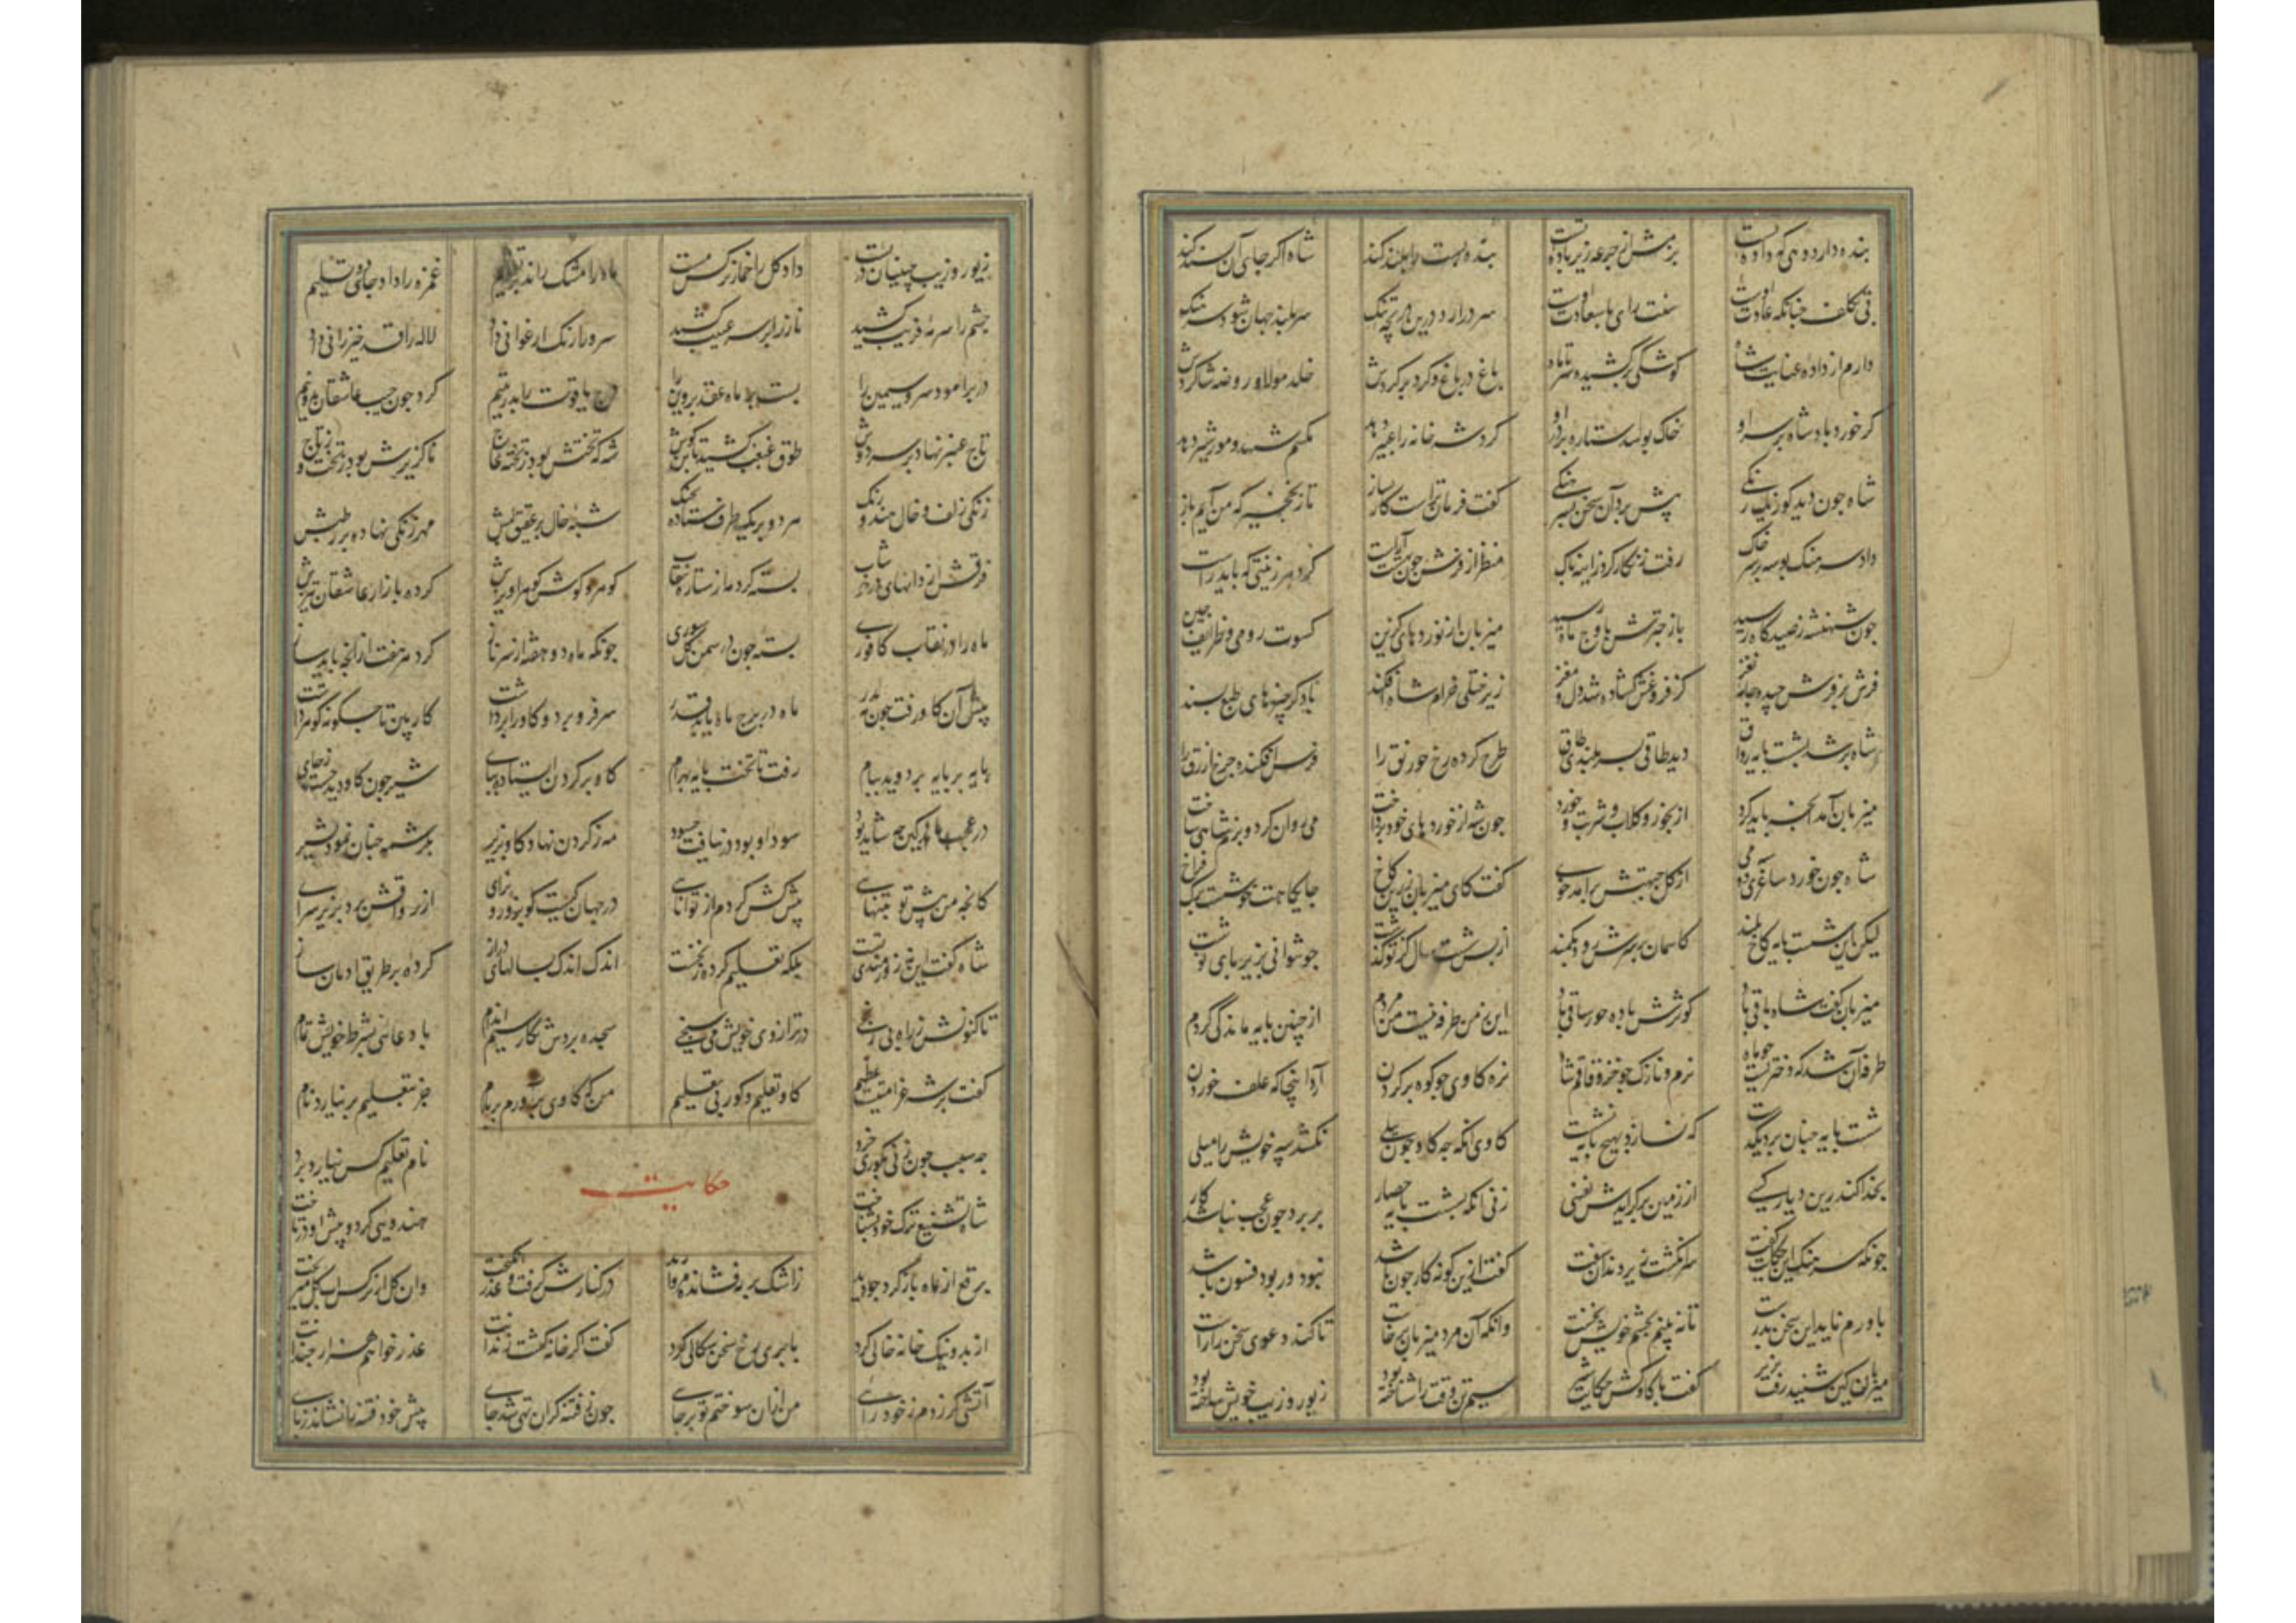 بنده دارد دهی که داده تست بزمش از جرعه ریز باده تست بنده پست را بلند کند شاه اگر جای آن پسند کند
بی تکلف چنانکه عادت اوست سنت رای با سعادت اوست سر درارد درین دریچه تنک سربلند جهان شود سرهنک
دارم از داده عنایت شاه کوشکی برکشیده سر تا ماه باغ در باغ کرد بر کردش خلد مولا و روضه شاکردش
کر خورد باده شاه بر سر او خاک بوسد ستاره بر در او کردش خانه را عبیر دهد مکسم شهد و مور شیر دهد
شاه چون دید کو ز یک رنکی پیش برد آن سخن بسرهنکی کفت فرمان تراست کار بساز تا ز نخجیرکه من آیم باز
داد سرهنک بوسه بر سر خاک رفت زنکار کرد زاینه پاک منظر از فرش چون بهشت آراست کرد هر زینتی که باید راست
چون شهنشه ز صیدکاه رسید باز چترش باوج ماه رسید میزبان از نوردهای کزین کسوت رومی و طرایف چین
فرش بر فرش چیده جامه نغز کز فروغش کشاده شد دل و مغز زیر ختلی خرام شاه افکند با دکر چیزهای طبع پسند
شاه بر شد بشصت پایه رواق دید طاقی بسربلندی طاق طرح کرده رخ خورنق را فرش افکنده چرخ ازرق را
میزبان آمد آنچه باید کرد از بخور و کلاب و شربت و خورد چون شه از خوردهای خود پرداخت می روان کرد و بزم شاهی ساخت
شاه چون خورد ساغری دو می از کل جبهتش برآمد خوی کفت کای میزبان زرین کاخ جایکاهت خوشست برک فراخ
لیکن این شصت پایه کاخ بلند کاسمان بر سرش رود بکمند از پس شصت سال کز تو کذشت چون توانی بزیر پای نوشت
میزبان کفت شاه باقی باد کوثرش باده حور ساقی باد این ز من طرفه نیست من مردم از چنین پایه ماندکی کردم
طرفه آن شد که دختریست چو ماه نرم و نازک چو خز و قاقم شاه نره کاوی چو کوه بر کردن آرد اینجا که علف خوردن
شصت پایه چنان برد بیکدست که نسازد بهیچ پایه نشست کاوی آنکه چه کاو چون پیلی نکشد پیه خویش را میلی
بخدا کندرین دیار کسی از زمین برکرایدش نفسی زنی آنکه بشصت پایه حصار بر برد چون عجب نباشد کار
چونکه سرهنک این حکایت کفت سر انکشت زیر دندان سفت کفت ازین کونه کار چون باشد نبود ور بود فسون باشد
باورم ناید این سخن بدرست تا نبینم بچشم خویش نخست وانکه آن مرد میزبان خواست تا کند دعوی سخن را راست
میزبان کین شنید رفت بزیر کفت با کاوکش حکایت شیر سیمتن وقت را شناخته بود زیور و زیب خویش ساخته بود
زیور و زیب چینیان در بست داد کل را خمار نرکس مست ماه را مشک راند بر تقویم غمزه را داد جادوی تعلیم
چشم را سرمه فریب کشید ناز را بر سر عتیب کشید سرو را رنک ارغوانی داد لاله را قد خیزرانی داد
در برامود سرو سیمین را بست بر ماه عقد پروین را درج یاقوت را بدر یتیم کرد چون جیب عاشقان بدو نیم
تاج عنبر نهاد بر سر دوش طوق غبغب کشید تا بن کوش شه که تختش بود ز تخته عاج ناکزیرش بود ز تخت و ز تاج
زنکی زلف و خال هندو رنک هر دو بر یکطرف ستاده بجنک شبه خال بر عقیق لبش مهر زنکی نهاده بر رطبش
فرقش از دانهای در خوشاب بسته کرد مه از ستاره نقاب کوهر کوش کوهر آویزش کرده بازار عاشقان تیزش
ماه را در نقاب کافوری بسته چون در سمن کل سوری چونکه ماه دو هفته از سر ناز کرد هر هفت از آنچه باید ساز
پیش آن کاو رفت چون مه بدر ماه در برج ماه یابد قدر سر فرو برد و کاو را برداشت کار بین تا چکونه کوهر داشت
پایه بر پایه بر دوید ببام رفت تا تخت پایه بهرام کاو بر کردن ایستاد بپای شیر چون کاو دید جست ز جای
در عجب ماند کین چه شاید بود سود او بود در نیافت چه سود مه ز کردن نهاد کاو بزیر بکرشمه چنان نمود بشیر
کانچه من پیش تو بتنهایی پیش کش کردم از توانایی در جهان کیست کو بزور و برای از رواقش برد بزیر سرای
شاه کفت این نه زورمندی تست بلکه تعلیم کرده ز نخست اندک اندک بسالهای دراز کرده بر طریق ادمان ساز
تا کنونش ز راه بی رنجی در ترازوی خویش می سنجی سجده بردش نکار سیم اندام با دعائی بشرط خویش تمام
کفت بر شه غرامتیست عظیم کاو تعلیم و کور بی تعلیم من که کاوی برآورم بر بام جز بتعلیم بر نیارد نام
چه سبب چون زنی تو کوری خرد نام تعلیم کس نیارد برد
حکایت
شاه تشنیع ترک خود بشناخت هندویی کرد و پیش او در تاخت
برقع از ماه باز کرد چو دید ز اشک بر مه فشاند مروارید در کنارش کرفت و عذر انکیخت وان کل از نرکس آب کل میریخت
از بد و نیک خانه خالی کرد با پری رخ سخن سکالی کرد کفت اکر خانه کشت زندانت عذر خواهم هزار چندانت
آتشی کر زدم ز خود رائی من ازان سوختم تو بر جائی چون ز فتنه کران تهی شد جای پیش خود فتنه را نشاند ز پای